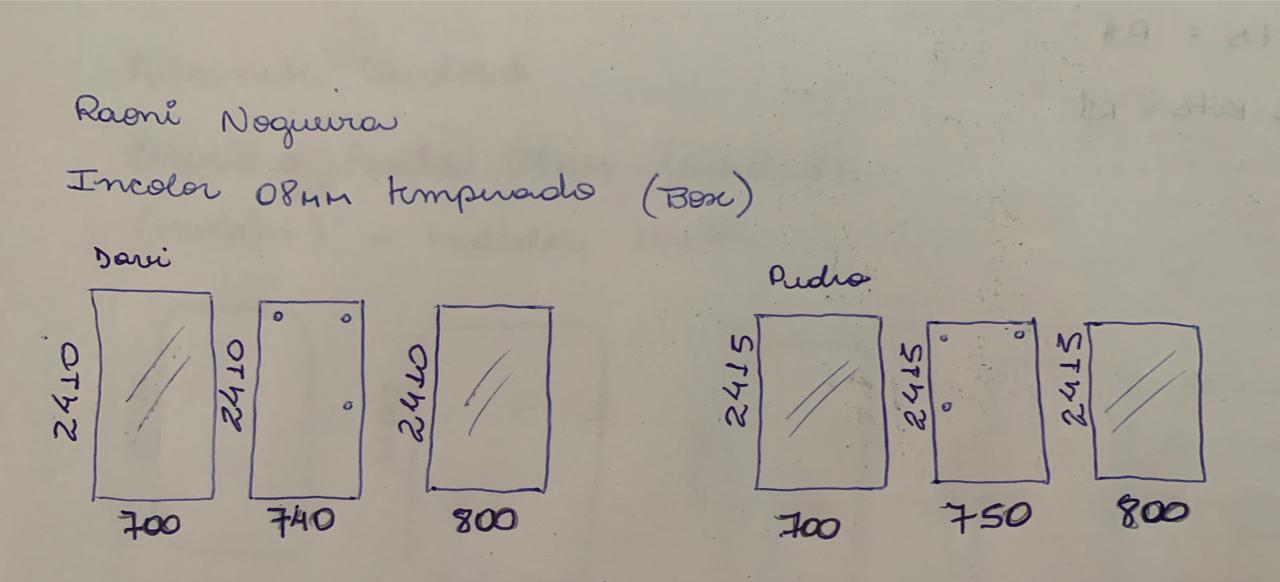 Raoni Nogueira
Incolor 08mm temperado (Box)
Davi
2410 2410 2410
700 740 800
Pedro
2415 2415 2415
700 750 800